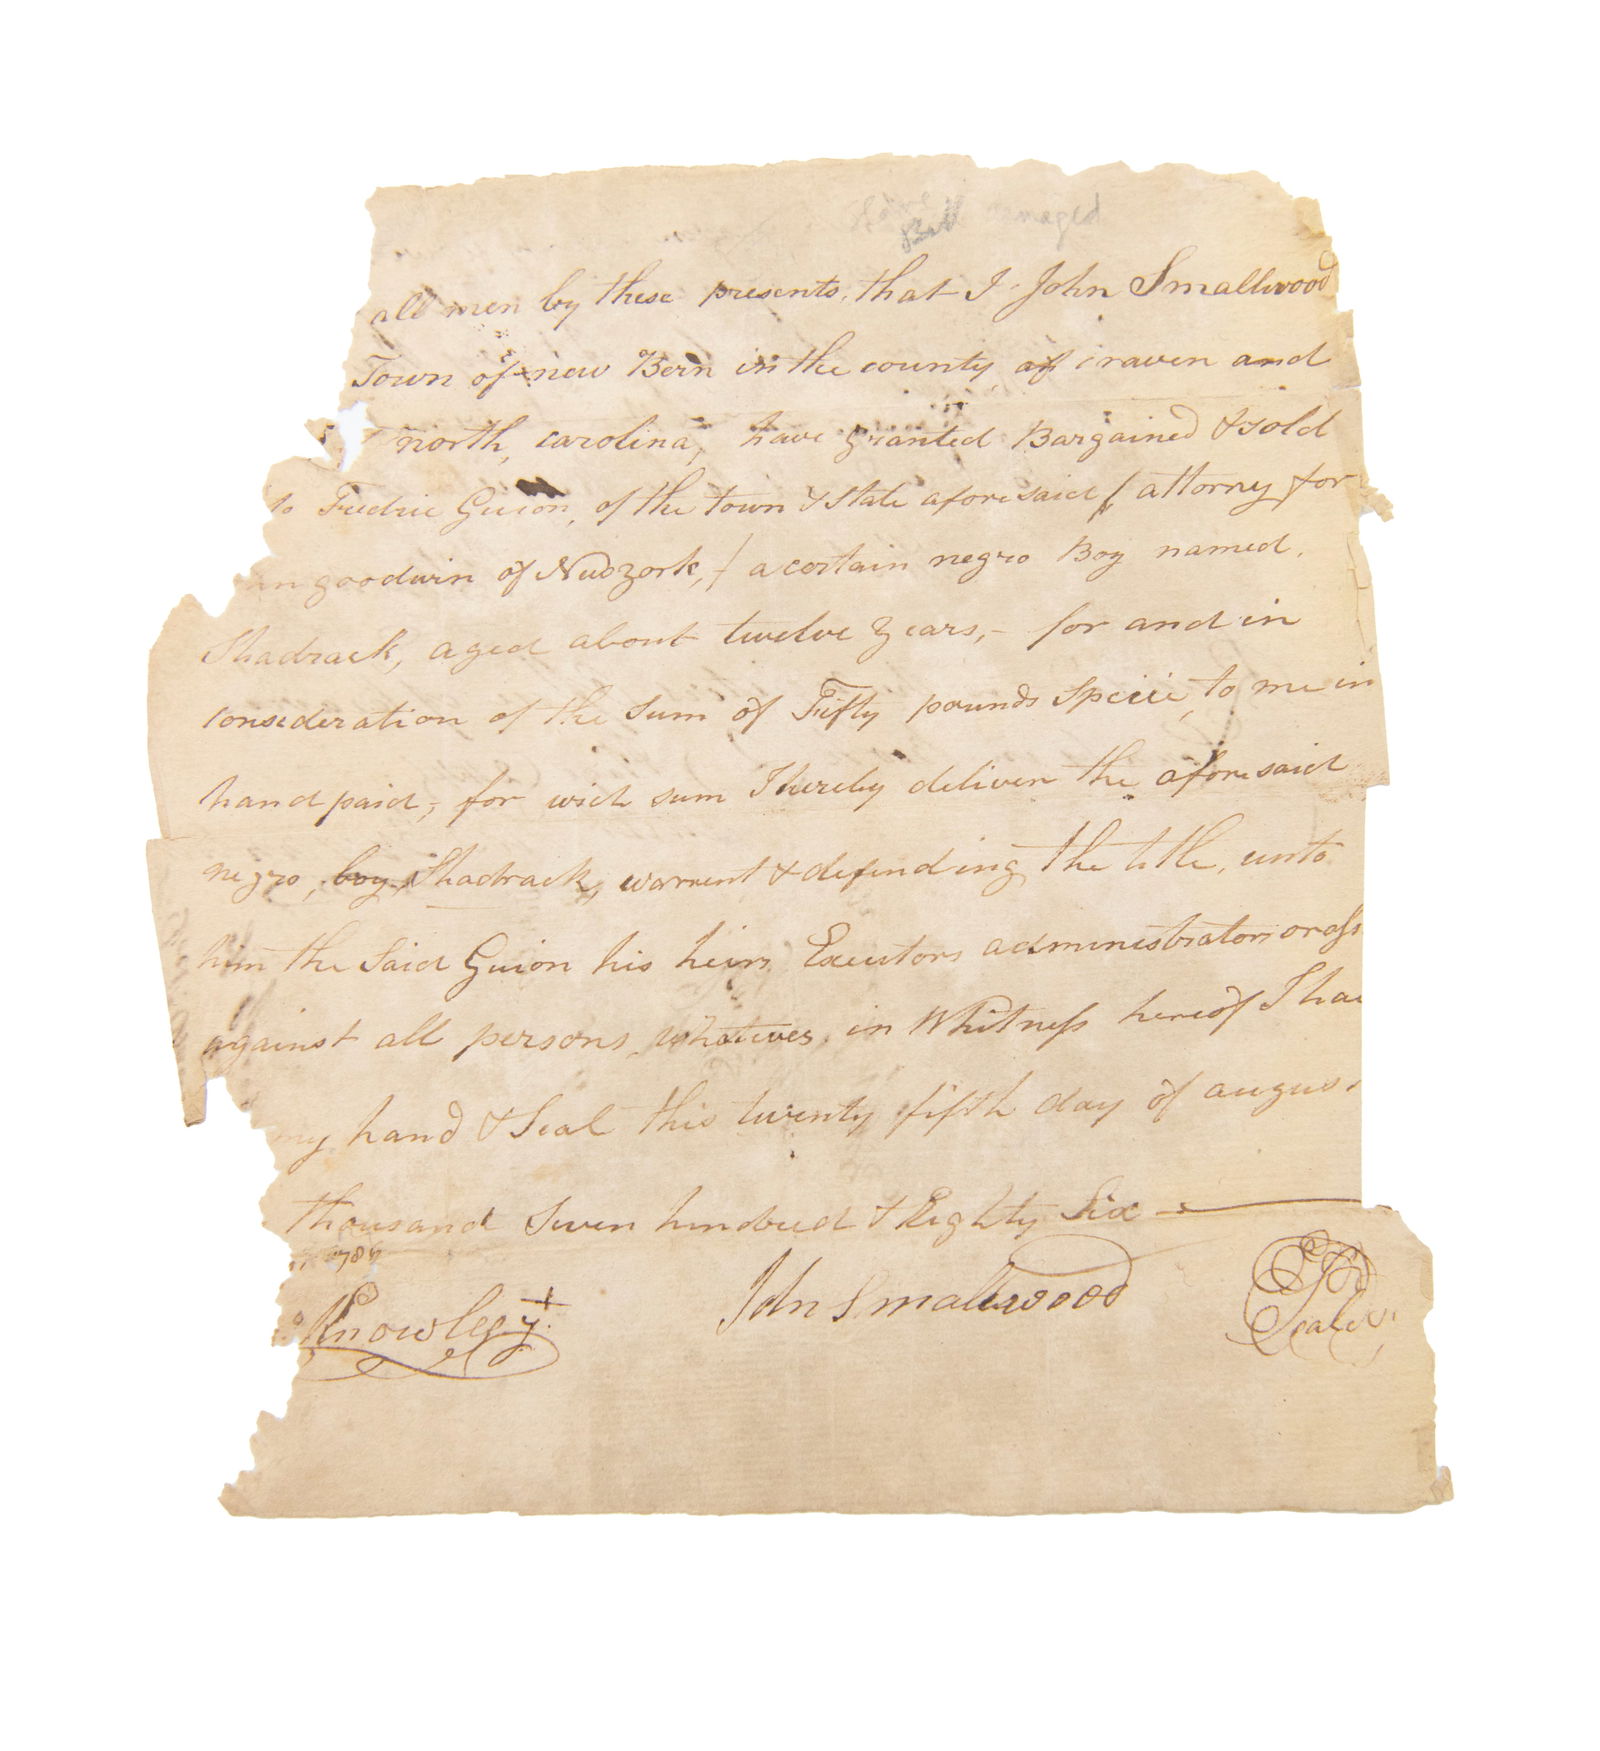 Bill damaged
all men by these presents, that I John Smallwood
Town of new Bern in the county of craven and
north, carolina, have granted Bargained & sold
to Fredric Guion, of the town & state aforesaid ( attorny for
goodwin of Newyork, ) a certain negro Boy named,
Shadrack, aged about twelve years, - for and in
consideration of the sum of Fifty pounds Specie, to me in
hand paid, - for wich sum I hereby deliver the aforesaid
negro, boy, Shadrack, warrent & defending the title, unto
him the Said Guion his heirs Executors administrators or ass
against all persons whatever, in Whitness hereof I hav
my hand & Seal this twenty fifth day of augus
thousand Seven hundred & Eighty Six
1786
Knowley John Smallwood Seal